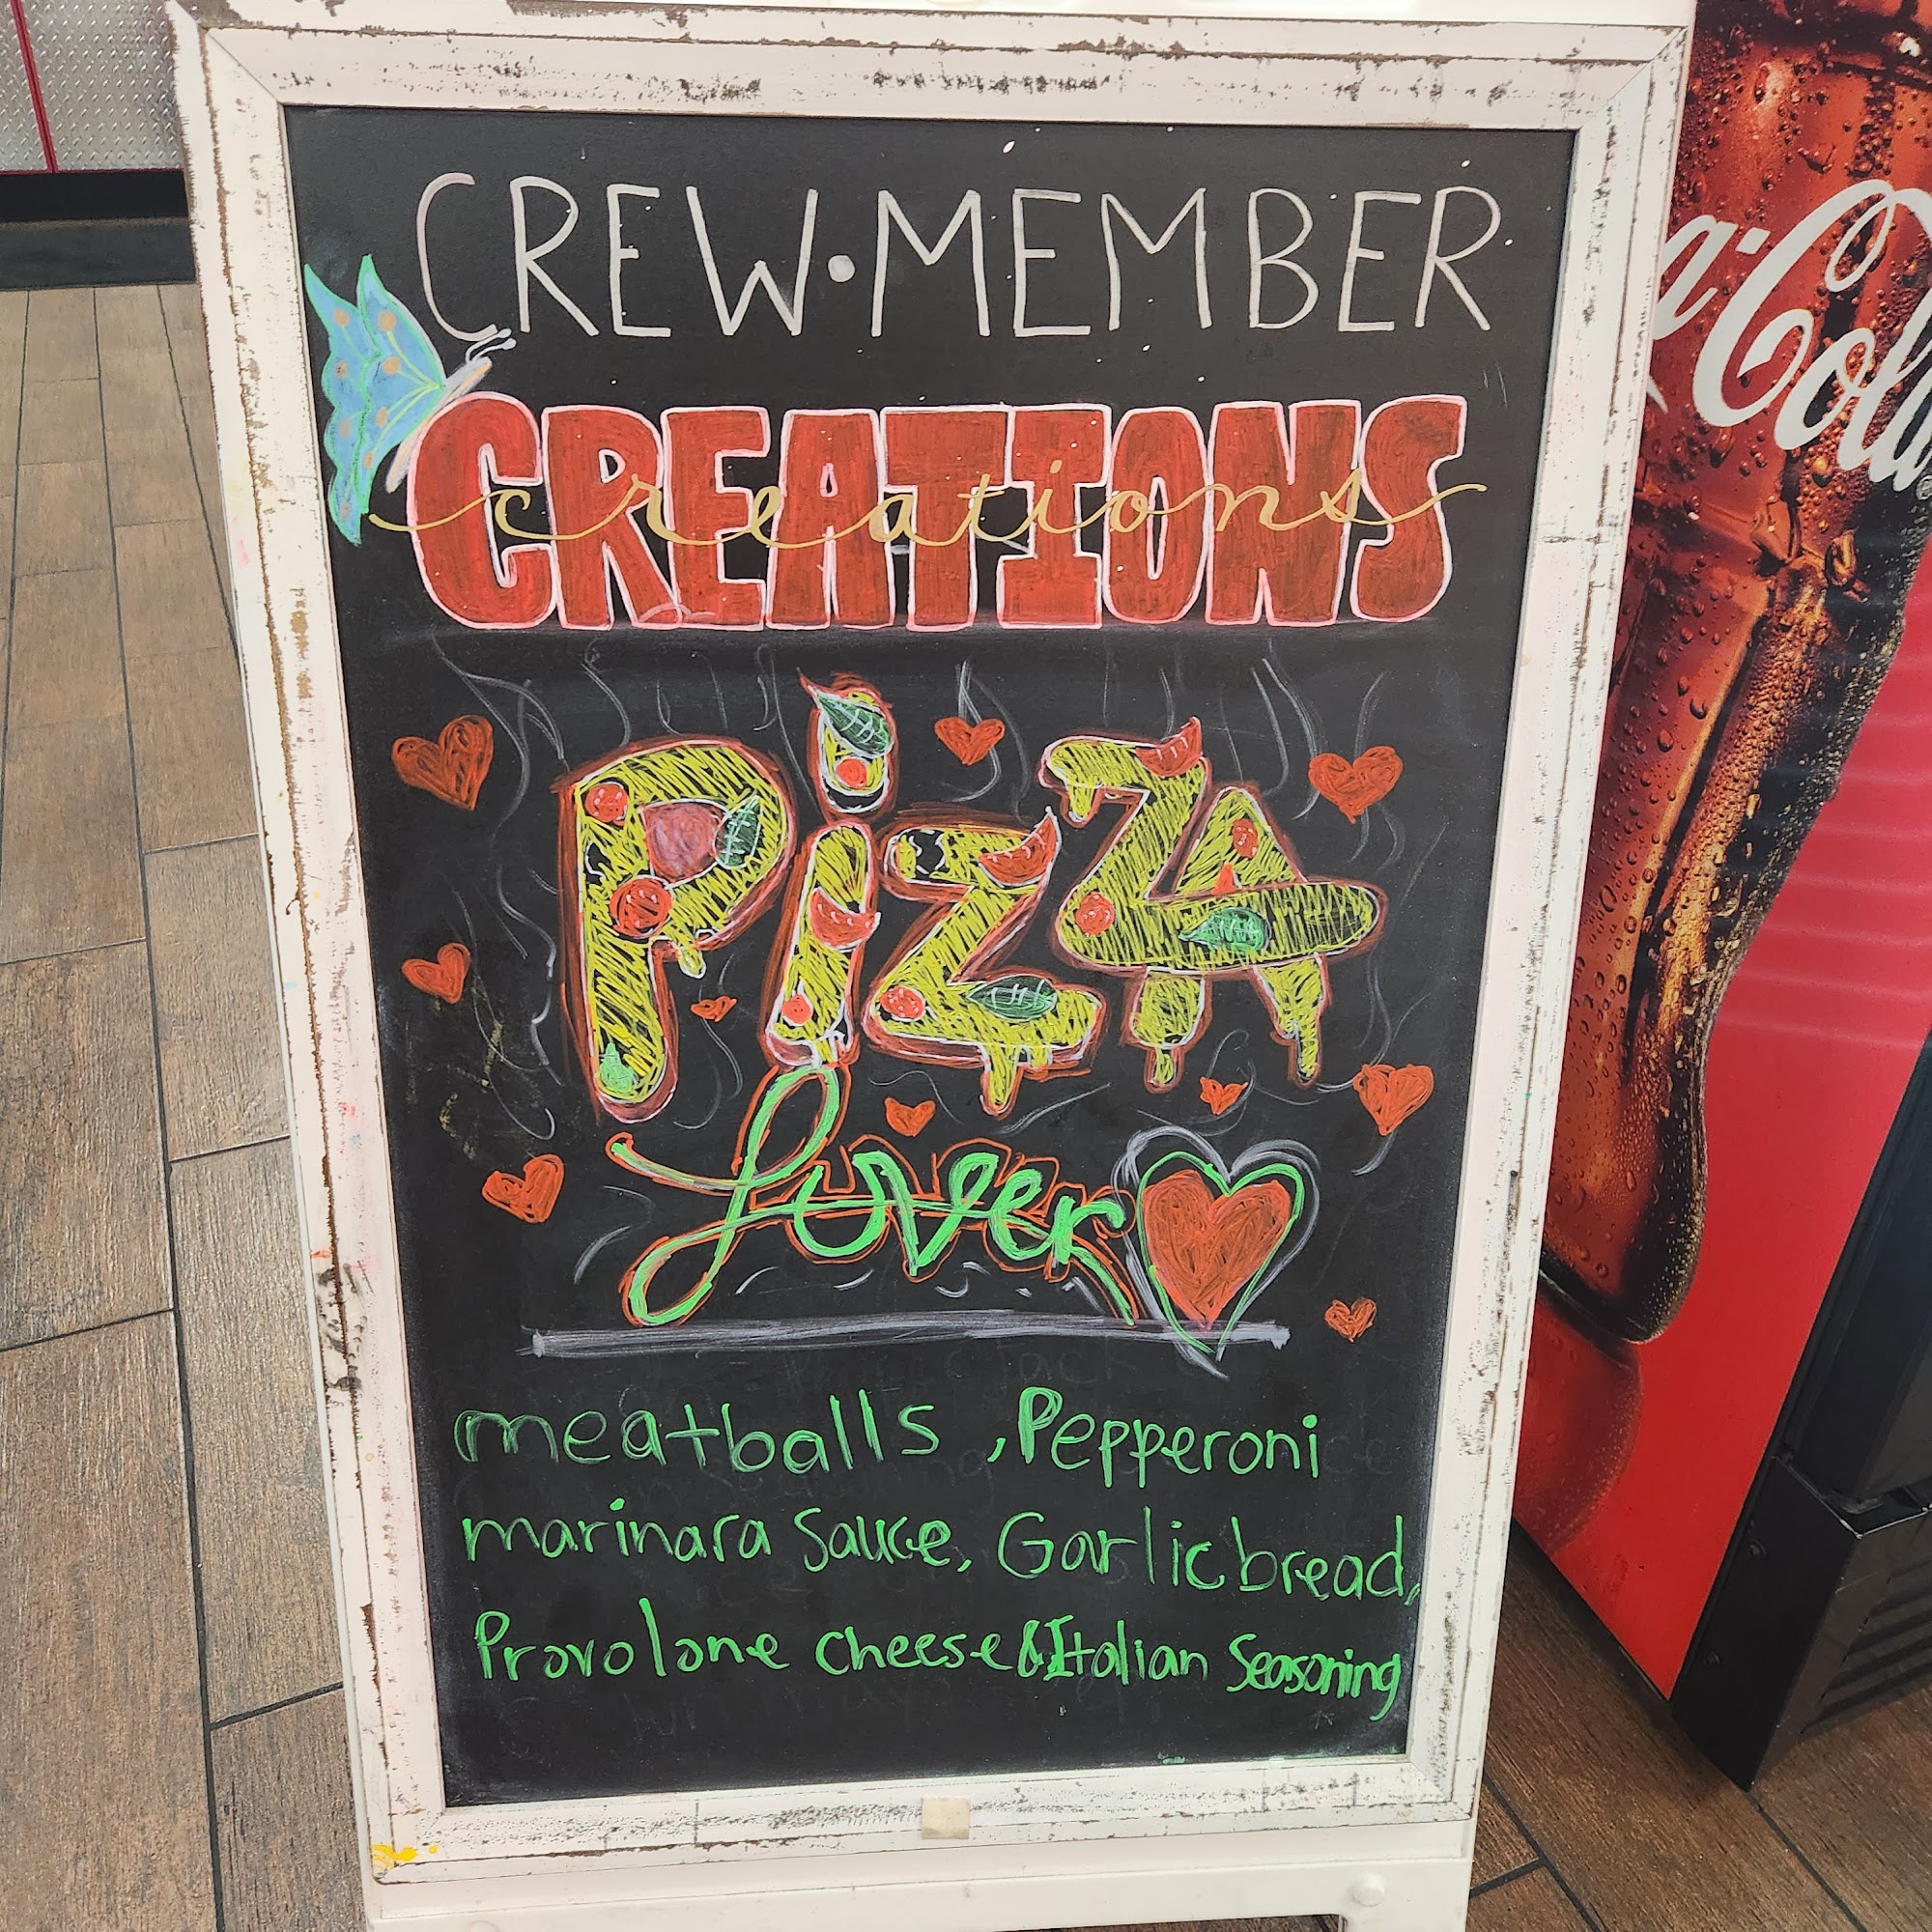 CREW•MEMBER
CREATIONS
creations
PizZA
Lover
meatballs, Pepperoni
marinara Sauce, Garlic bread,
Provolone cheese & Italian Seasoning
a-Cola